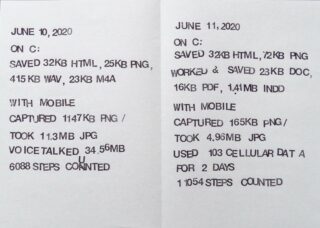 JUNE 10, 2020
ON C:
SAVED 32KB HTML, 25KB PNG,
415 KB WAV, 23KB M4A
WITH MOBILE
CAPTURED 1147KB PNG /
TOOK 11.3MB JPG
VOICETALKED 34.56MB
6088 STEPS COUNTED
JUNE 11, 2020
ON C:
SAVED 32KB HTML, 72KB PNG
WORKED & SAVED 23KB DOC,
16KB PDF, 1.41MB INDD
WITH MOBILE
CAPTURED 165KB PNG/
TOOK 4.96MB JPG
USED 103 CELLULAR DATA
FOR 2 DAYS
11054 STEPS COUNTED